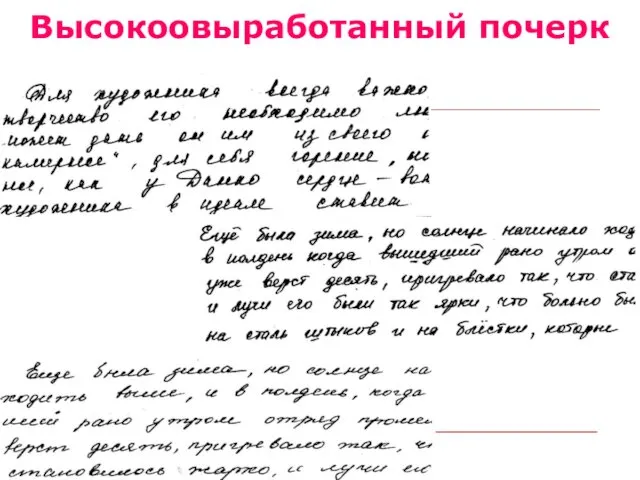 Высокоовыработанный почерк
Для художника всегда важно
творчество его необходимо
может дать он им из своего
камерное", для себя горение, не
нее, как у Данко сердце – вот
художника в идеале ставит
Ещё была зима, но солнце начинало ход
в полдень когда вышедший рано утром о
уже верст десять, пригревало так, что ста
и лучи его были так ярки, что больно бы
на сталь штыков и на блёстки, которые
Еще была зима, но солнце на
ходить выше, и в полдень, когда
ший рано утром отряд прошел
верст десять, пригревало так, ч
становилось жарко, и лучи ег